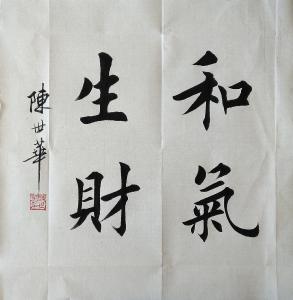 和氣
生財
陳世華